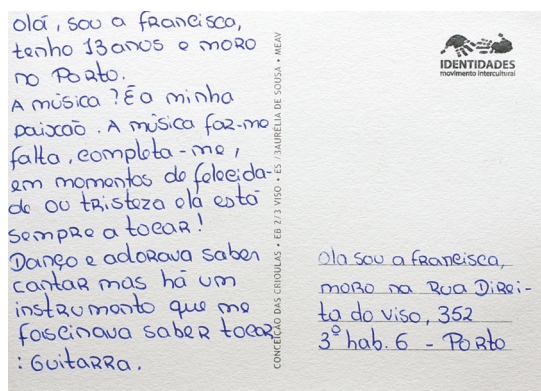 olá, sou a francisca,
tenho 13 anos e moro
no Porto.
A música? É a minha
paixão. A música faz-me
falta, completa-me,
em momentos de felecida-
de ou tristeza ela está
sempre a tocar!
Danço e adorava saber
cantar mas há um
instrumento que me
foiscinava saber tocar
: Guitarra.
CONCEIÇÃO DAS CRIOULAS • EB 2/3 VISO • ES /3AURÉLIA DE SOUSA • MEAV
IDENTIDADES
movimento intercultural
Ola sou a francisca,
moro na Rua Direi-
ta do viso, 352
3º hab. 6 - Porto